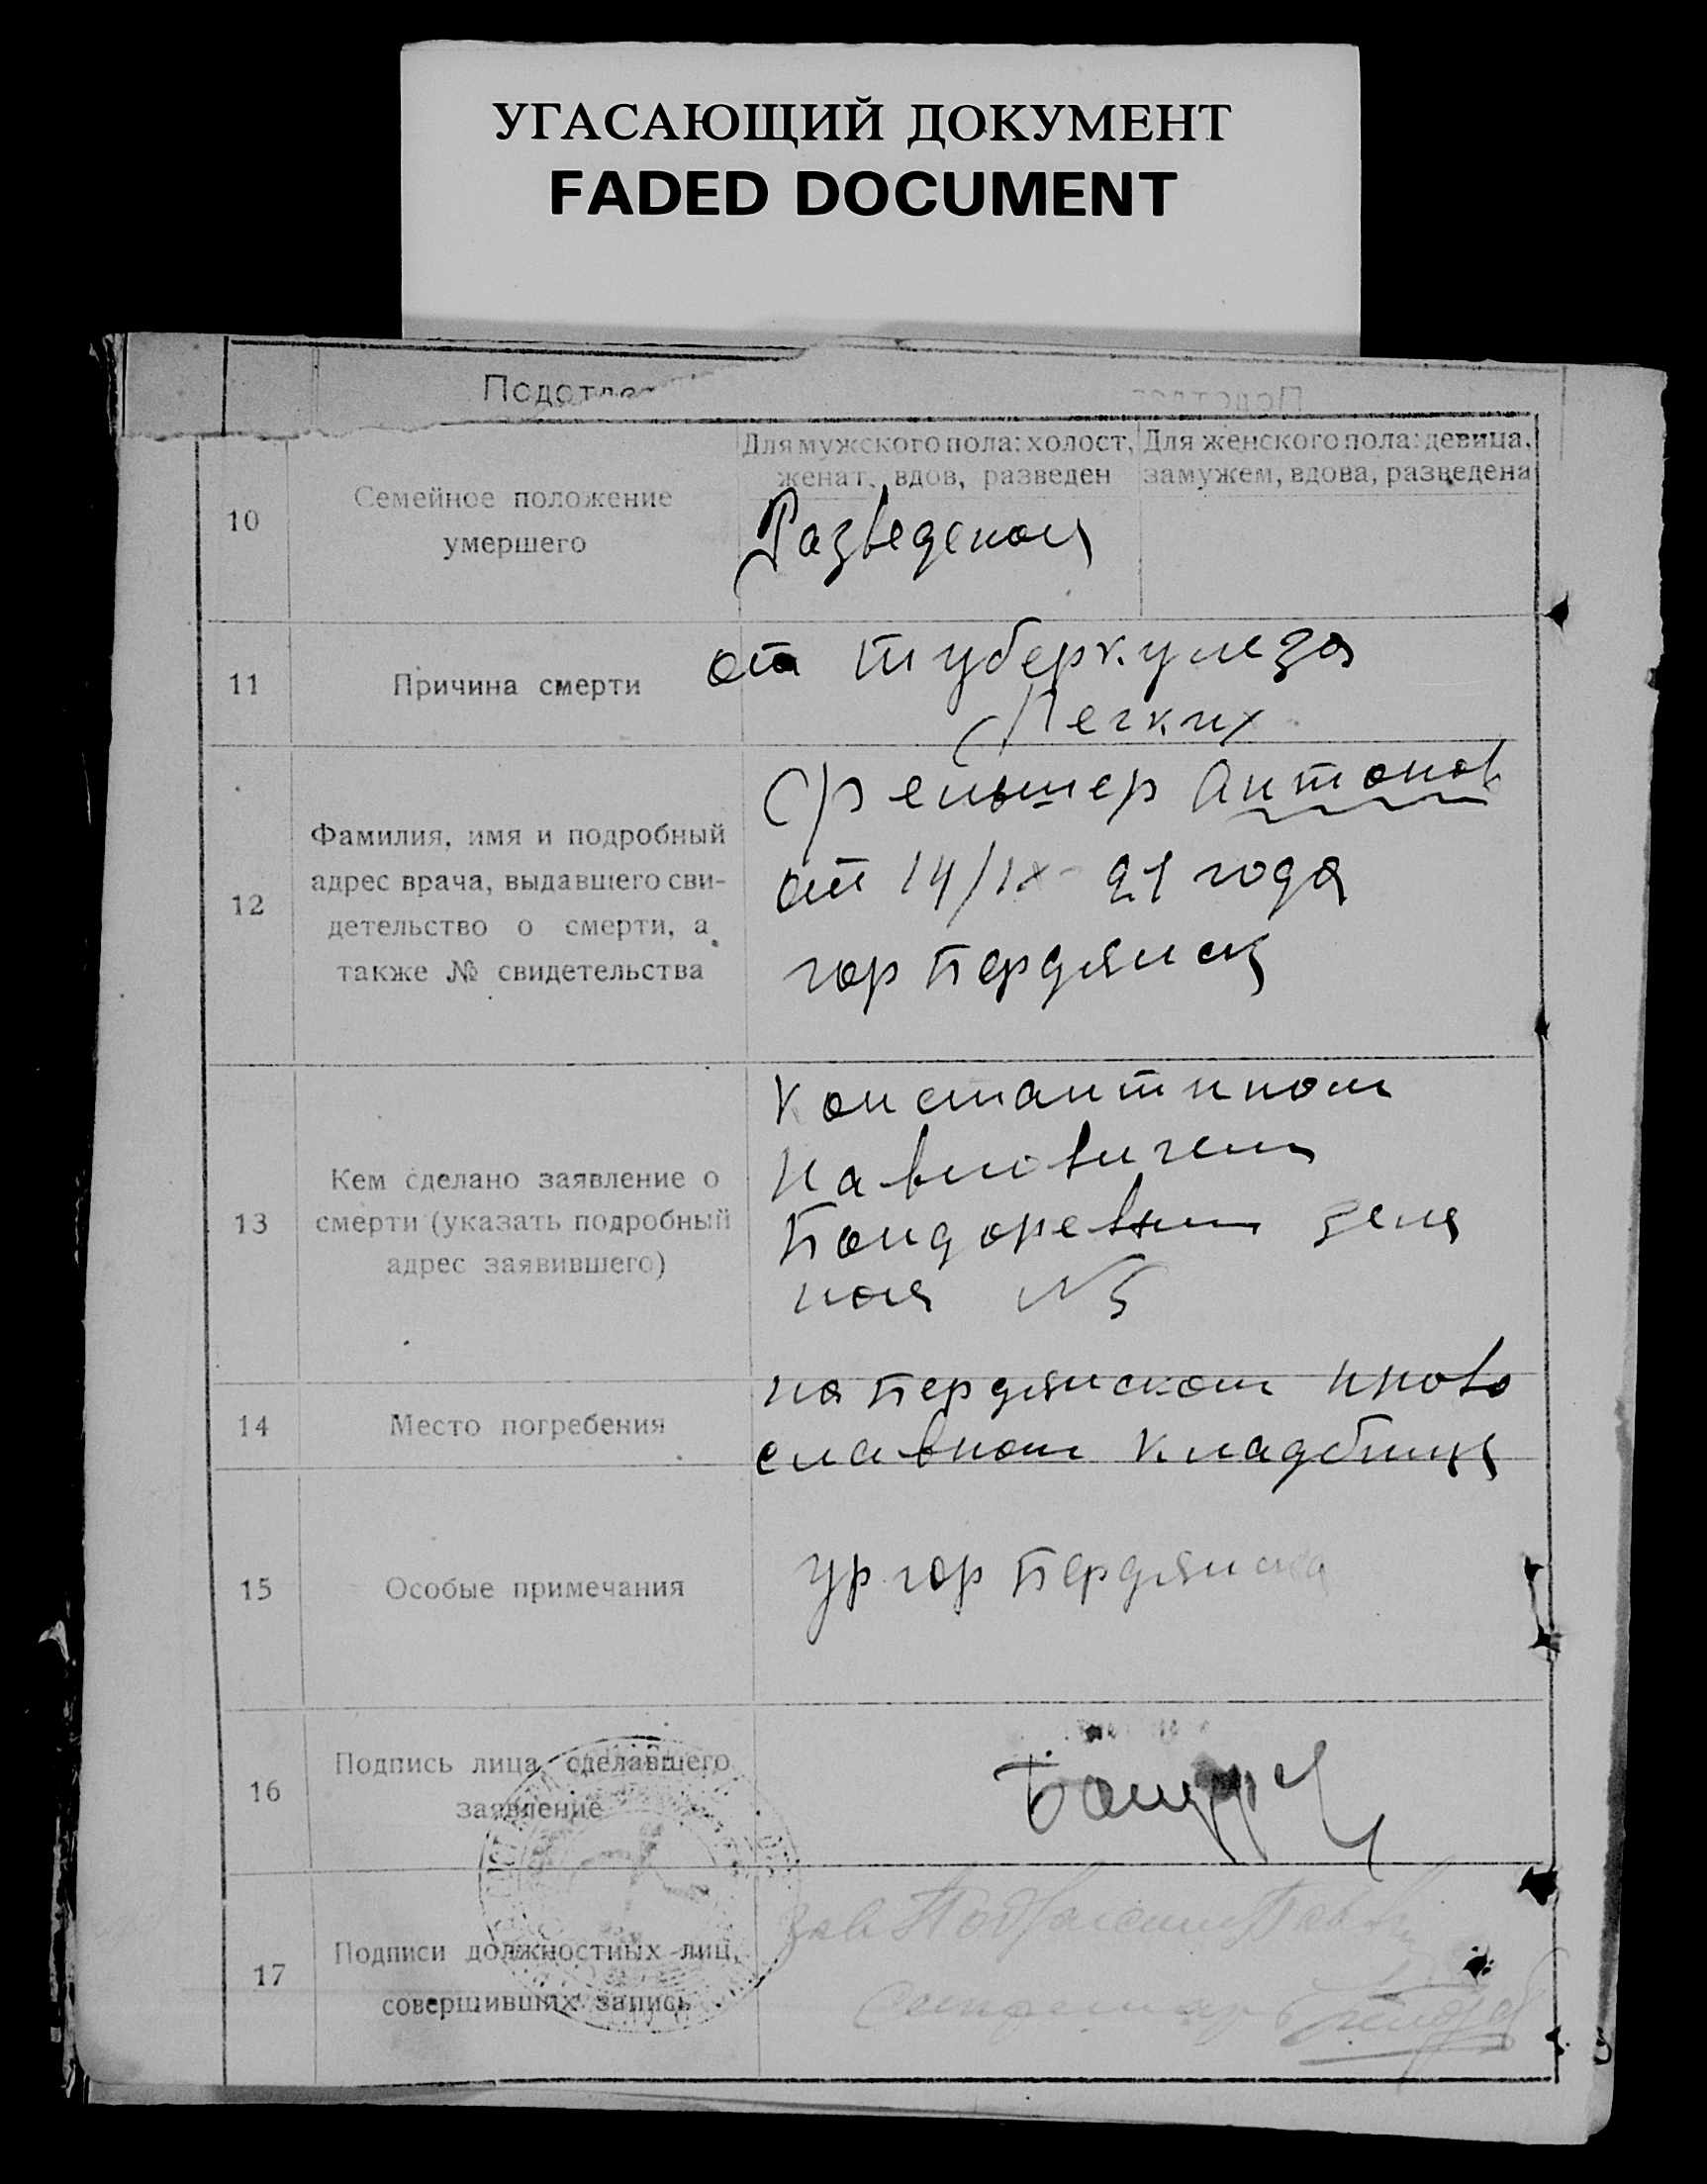 УГАСАЮЩИЙ ДОКУМЕНТ
FADED DOCUMENT
Подотдел
Для мужского пола: холост, женат, вдов, разведен
Для женского пола: девица, замужем, вдова, разведена
10
Семейное положение
умершего
11
Причина смерти
от туберкулеза
Легких
12
Фамилия, имя и подробный
адрес врача, выдавшего сви-
детельство о смерти, а
также № свидетельства
Фельшер Антонов
от 14/IX - 21 года
гор Бердянск
13
Кем сделано заявление о
смерти (указать подробный
адрес заявившего)
Константином
Павловичем
зеле
ная №5
14
Место погребения
на Бердянском право
славном кладбище
15
Особые примечания
гор Бердянска
16
Подпись лица, сделавшего
заявление
17
Подписи должностных лиц,
совершивших запись
Зав